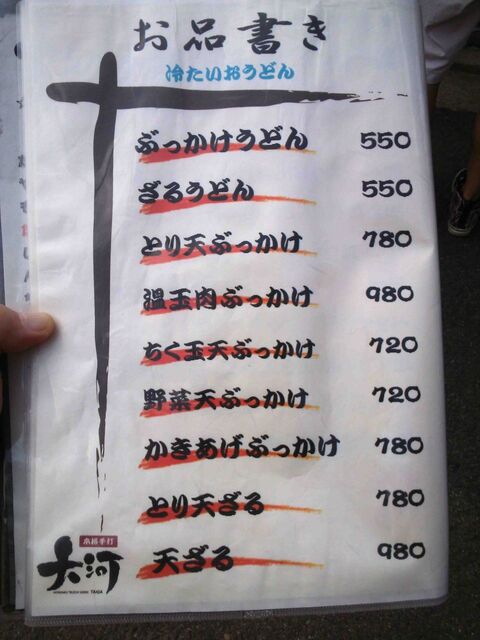 お品書き
冷たいおうどん
ぶっかけうどん 550
ざるうどん 550
とり天ぶっかけ 780
温玉肉ぶっかけ 980
ちく玉天ぶっかけ 720
野菜天ぶっかけ 720
かきあげぶっかけ 780
とり天ざる 780
天ざる 980
本格手打
大河